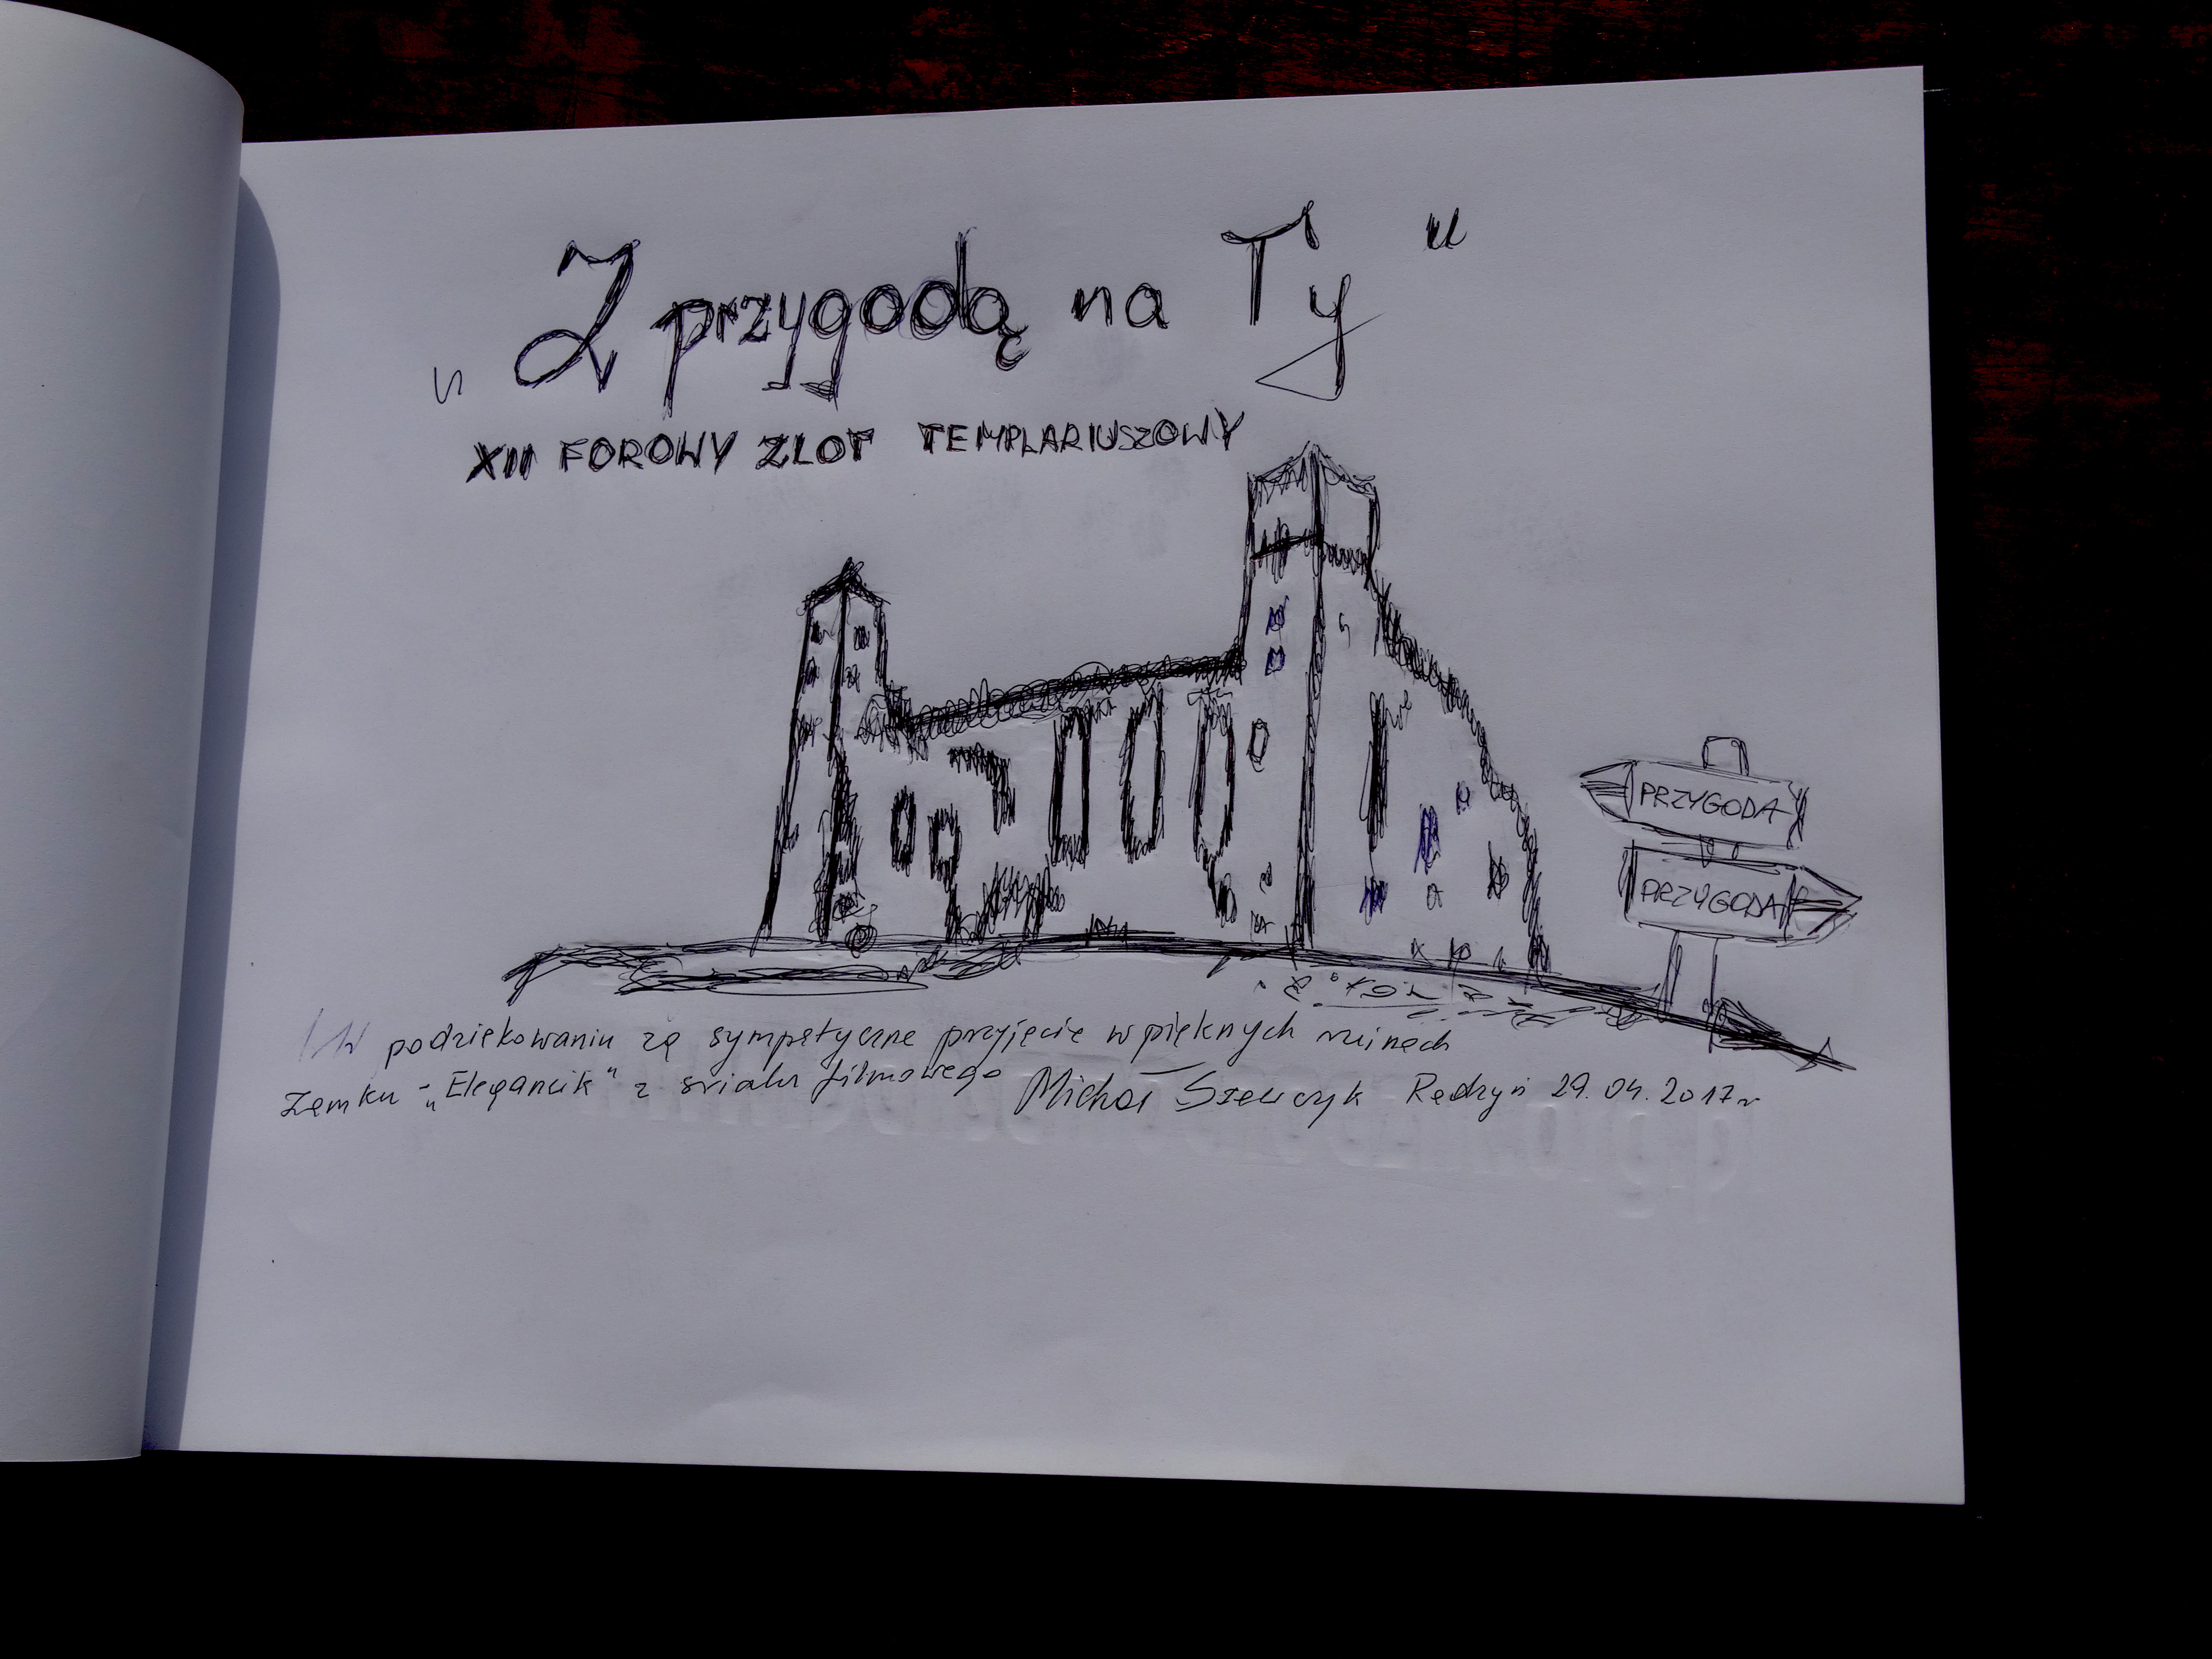 „Z przygodą na Ty"
XII FOROWY ZLOT TEMPLARIUSZOWY
PRZYGODA
PRZYGODA
W podziękowaniu za sympatyczne przyjęcie w pięknych ruinach
Zamku - „Elegancik" z świata filmowego Michał Szewczyk Radzyń 29.04.2017r